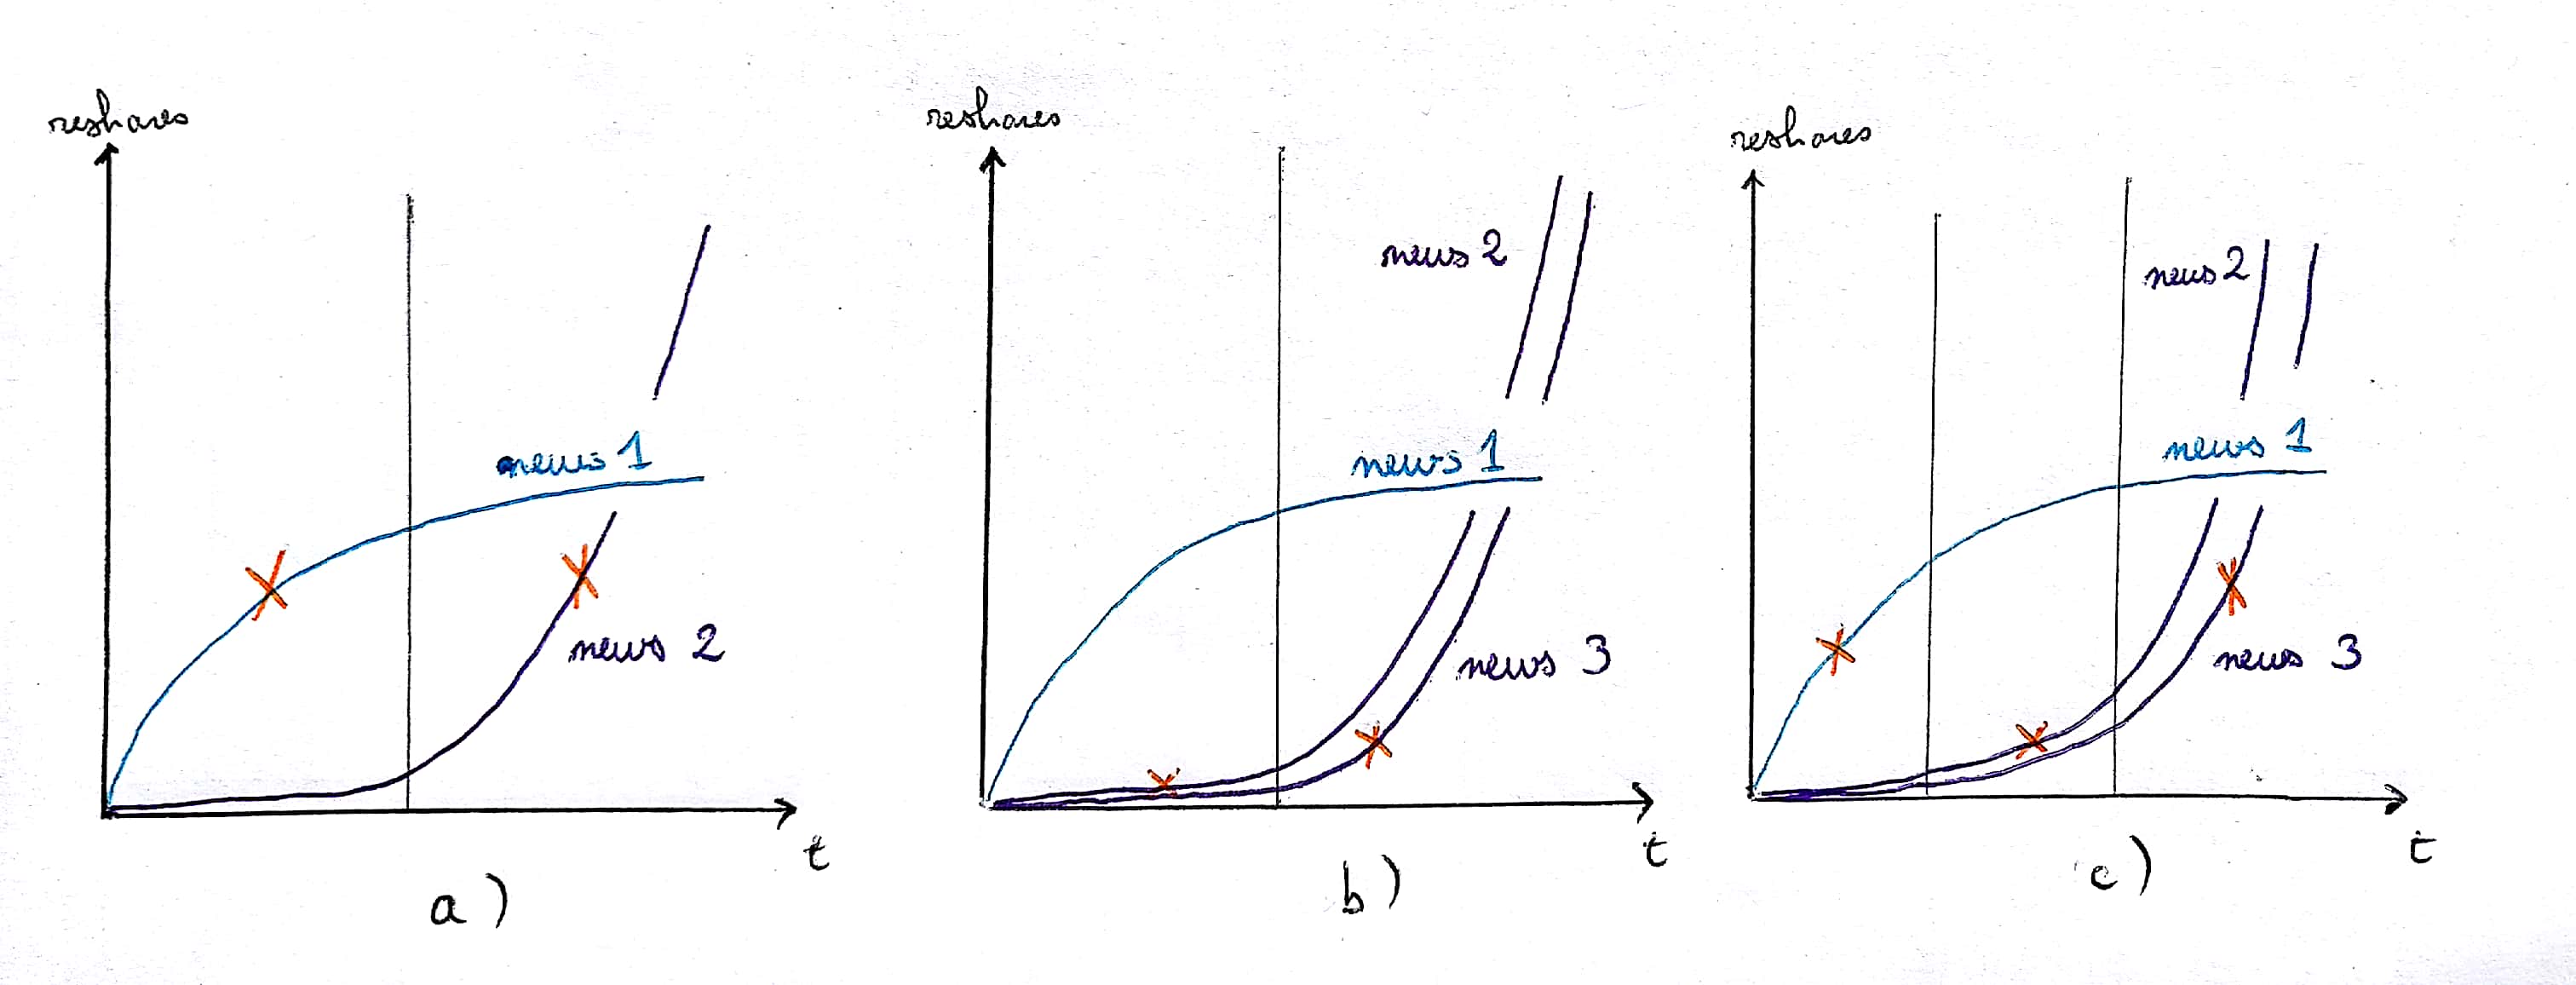 reshares
news 1
news 2
t
a)
reshares
news 2
news 1
news 3
t
b)
reshares
news 2
news 1
news 3
t
c)